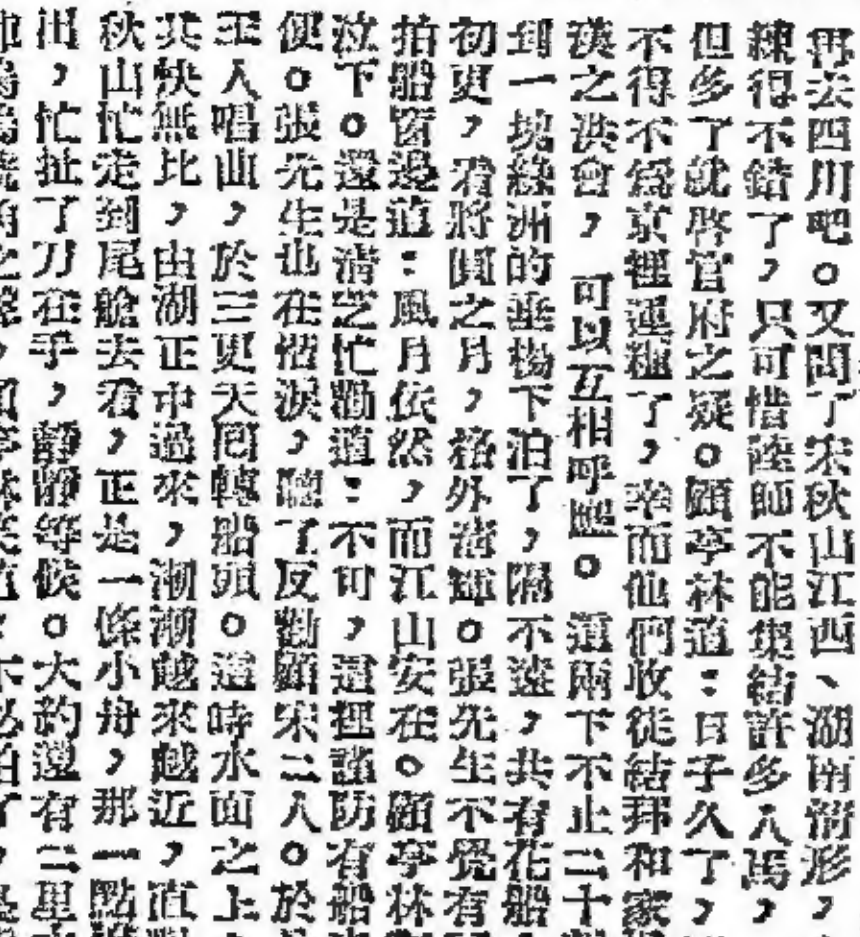 再去四川吧。又問了宋秋山江西、湖南情形，
練得不錯了，只可惜陸師不能集結許多人馬，
但多了就啓官府之疑。顧亭林道：日子久了，
不得不爲京裡運糧了，幸而他們收徒結拜和家
漢之洪會，可以互相呼應。這兩下不止二十
到一塊綠洲的垂楊下泊了，隔不遠，共有花船
初更，看將圓之月，格外清輝。張先生不覺有
拍船窗邊道：風月依然，而江山安在。顧亭林
泣下。還是清芝忙勸道：不可，這裡諸防有船
便。張先生也在揩淚，聽了反勸顧宋二人。於
玉人唱曲，於三更天囘轉船頭。這時水面之上
其快無比，由湖正中過來，漸漸越來越近，直
秋山忙走到尾艙去看，正是一條小舟，那一點
出，忙扯了刀在手，靜靜等候。大約還有二里